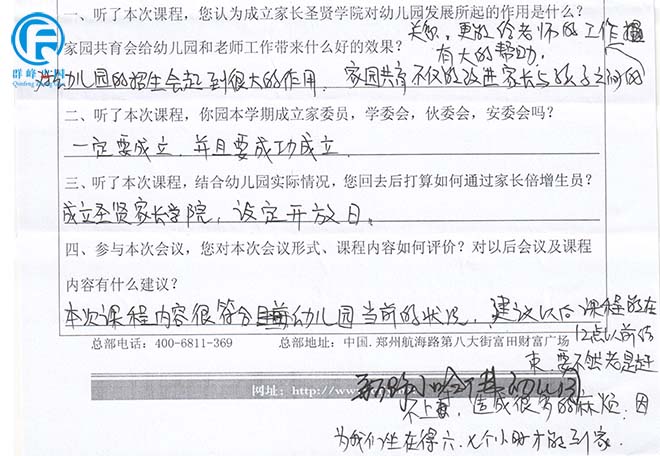 一、听了本次课程，您认为成立家长圣贤学院对幼儿园发展所起的作用是什么？
关系，更能给老师的工作
家园共育会给幼儿园和老师工作带来什么好的效果？
有大的帮助.
群峰
Qunfeng
对幼儿园的招生会起到很大的作用. 家园共育不仅能改进家长与孩子之间的
二、听了本次课程，你园本学期成立家委员，学委会，伙委会，安委会吗？
一定要成立. 并且要成功成立.
三、听了本次课程，结合幼儿园实际情况，您回去后打算如何通过家长倍增生员？
成立圣贤家长学院，设定开放日。
四、参与本次会议，您对本次会议形式、课程内容如何评价？对以后会议及课程
内容有什么建议？
本次课程内容很符合目前幼儿园当前的状况. 建议以后课程能在
12点以前结
总部电话：400-6811-369 总部地址：中国.郑州航海路第八大街富田财富广场
束.要不然老是赶
网址：http://www.
幼儿园
不上车，造成很多的麻烦.因
为我们坐车得六.七个小时才能到家.